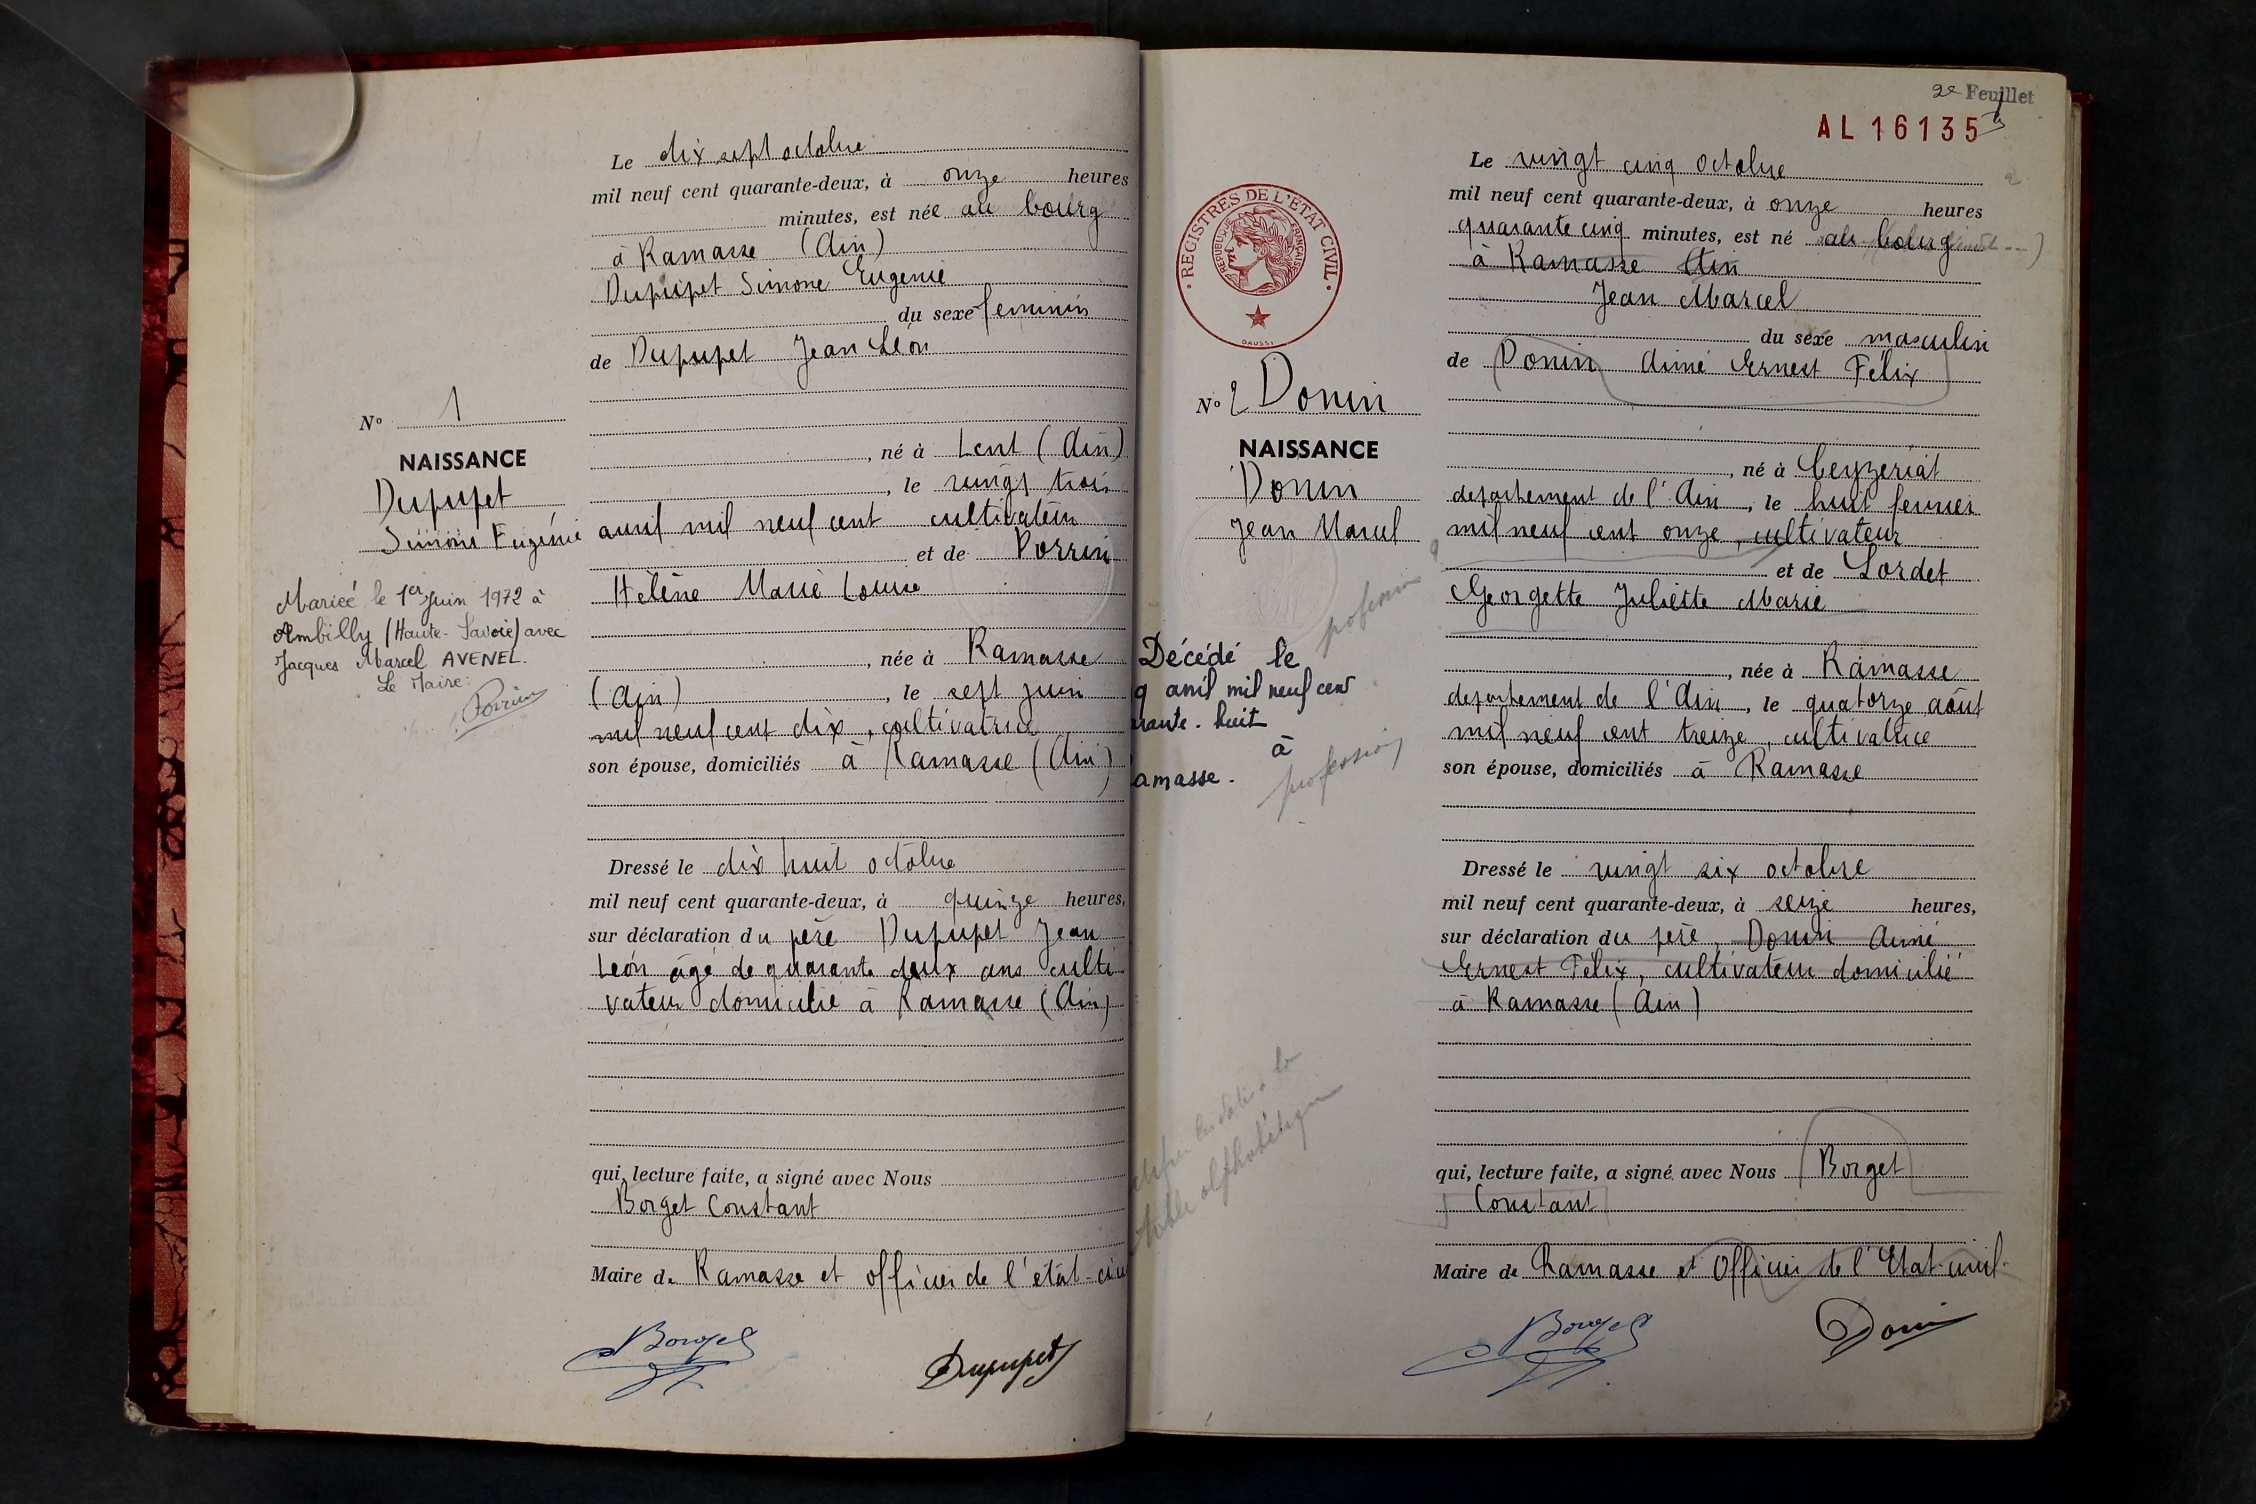 Le dix sept octobre
mil neuf cent quarante-deux, à onze heures
minutes, est née au bourg
à Ramasse (Ain)
Dupupet Simone Eugenie
du sexe feminin
de Dupupet Jean Léon
né à Lent (Ain)
, le vingt trois
avril mil neuf cent cultivateur
et de Perrin
Hélène Marie Louise
, née à Ramasse
(Ain), le sept juin
mil neuf cent dix, cultivatrice
son épouse, domiciliés à Ramasse (Ain)
Dressé le dix huit octobre
mil neuf cent quarante-deux, à quinze heures,
sur déclaration du père Dupupet Jean
Léon âgé de quarante deux ans culti
vateur domicilié à Ramasse (Ain)
qui, lecture faite, a signé avec Nous
Borget Constant
Maire de Ramasse et officier de l'état-civil
Borget
Dupupet
No 1
NAISSANCE
Dupupet
Simone Eugénie
Mariée le 1er Juin 1972 à
Ambilly (Haute-Savoie) avec
Jacques Marcel AVENEL.
Le Maire:
2e Feuillet
AL 16135
REGISTRES DE L'ÉTAT CIVIL
RÉPUBLIQUE FRANÇAISE
DAUSSI
No 2 Donin
NAISSANCE
Donin
Jean Marcel
profession
Décédé le
q avril mil neuf cent
rante-huit
à
amasse.
profession
table alphabétique
Le vingt cinq octobre
mil neuf cent quarante-deux, à onze heures
quarante cinq minutes, est né au bourg
à Ramasse Ain
Jean Marcel
du sexe masculin
de Donin Aimé Ernest Félix
, né à Ceyzériat
département de l'Ain, le huit fevrier
mil neuf cent onze, cultivateur
et de Sordet
Georgette Juliette Marie
, née à Ramasse
departement de l'Ain, le quatorze août
mil neuf cent treize, cultivatrice
son épouse, domiciliés à Ramasse
Dressé le vingt six octobre
mil neuf cent quarante-deux, à seize heures,
sur déclaration du père, Donin Aimé
Ernest Félix, cultivateur domicilié
à Ramasse (Ain)
qui, lecture faite, a signé avec Nous Borget
Constant
Maire de Ramasse et Officier de l'Etat-civil.
Borget
Donin